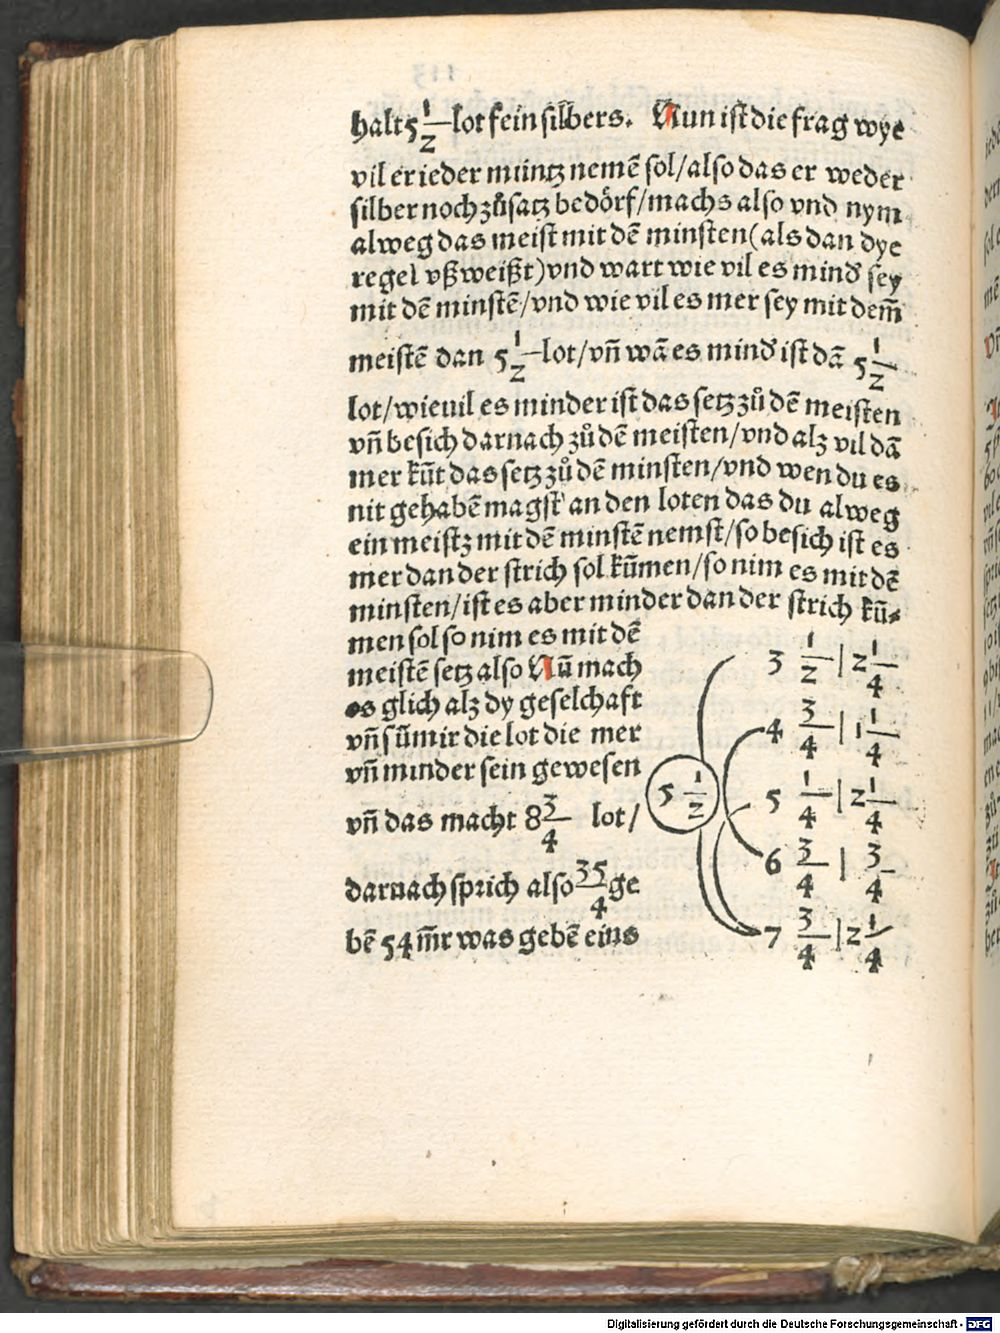 halt 5 1/2 lot fein silbers. Nun ist die frag wye
vil er ieder müntz nemē sol/also das er weder
silber noch zůsatz bedörf/machs also vnd nym
alweg das meist mit dē minsten(als dan dye
regel vßweißt)vnd wart wie vil es mind̕ sey
mit dē minstē/vnd wie vil es mer sey mit dem̄
meistē dan 5 1/2 lot/vn̄ wā es mind̕ ist dā 5 1/2
lot/wieuil es minder ist das setz zů dē meisten
vn̄ besich darnach zů dē meisten/vnd alz vil dā
mer kūt das setz zů dē minsten/vnd wen du es
nit gehabē magst an den loten das du alweg
ein meistz mit dē minstē nemst/so besich ist es
mer dan der strich sol kūmen/so nim es mit dē
minsten/ist es aber minder dan der strich kū-
men sol so nim es mit dē
meistē setz also Nū mach
es glich alz dy geselchaft
vn̄ sūmir die lot die mer
vn̄ minder sein gewesen
vn̄ das macht 8 3/4 lot/
darnach sprich also 35/4 ge
bē 54 m̄r was gebē eins
3 1/2 | 2 1/4
4 3/4 | 1 1/4
5 1/2
5 1/4 | 2 1/4
6 3/4 | 3/4
7 3/4 | 2 1/4
Digitalisierung gefördert durch die Deutsche Forschungsgemeinschaft - DFG